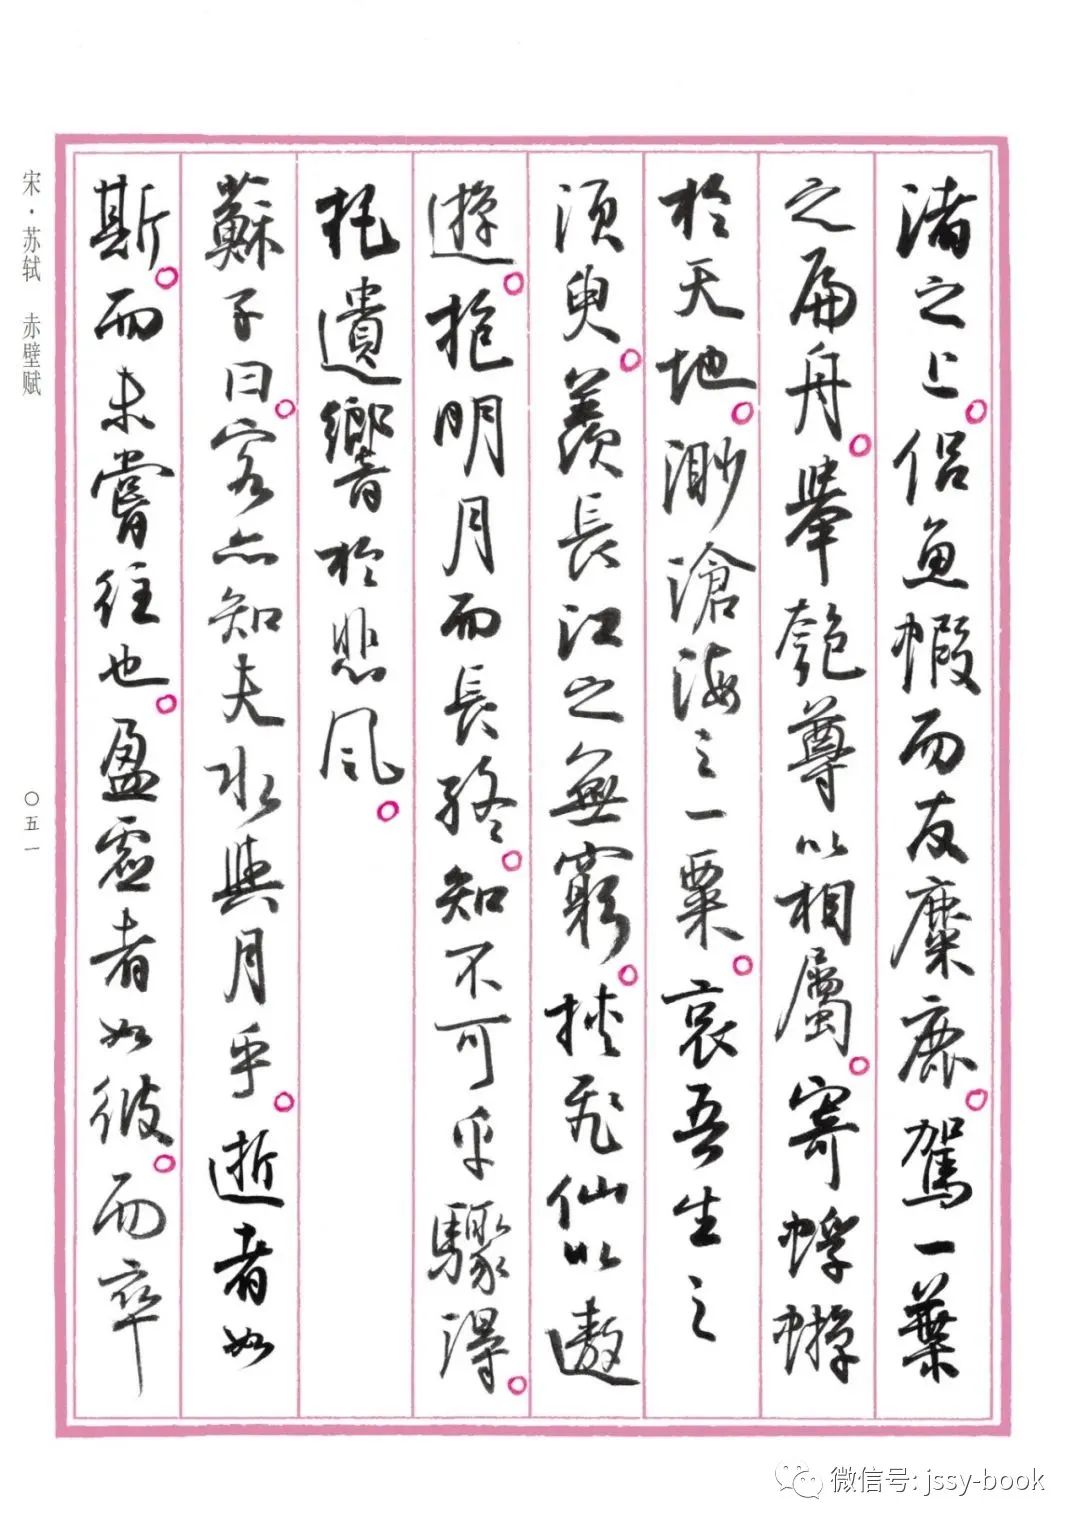 渚之上。侶魚蝦而友麋鹿。駕一葉
之扁舟。舉匏尊以相屬。寄蜉蝣
於天地。渺滄海之一粟。哀吾生之
須臾。羨長江之無窮。挾飛仙以遨
遊。抱明月而長終。知不可乎驟得。
托遺響於悲風。
蘇子曰。客亦知夫水與月乎。逝者如
斯。而未嘗往也。盈虛者如彼。而卒
宋·苏轼 赤壁赋
〇五一
微信号: jssy-book